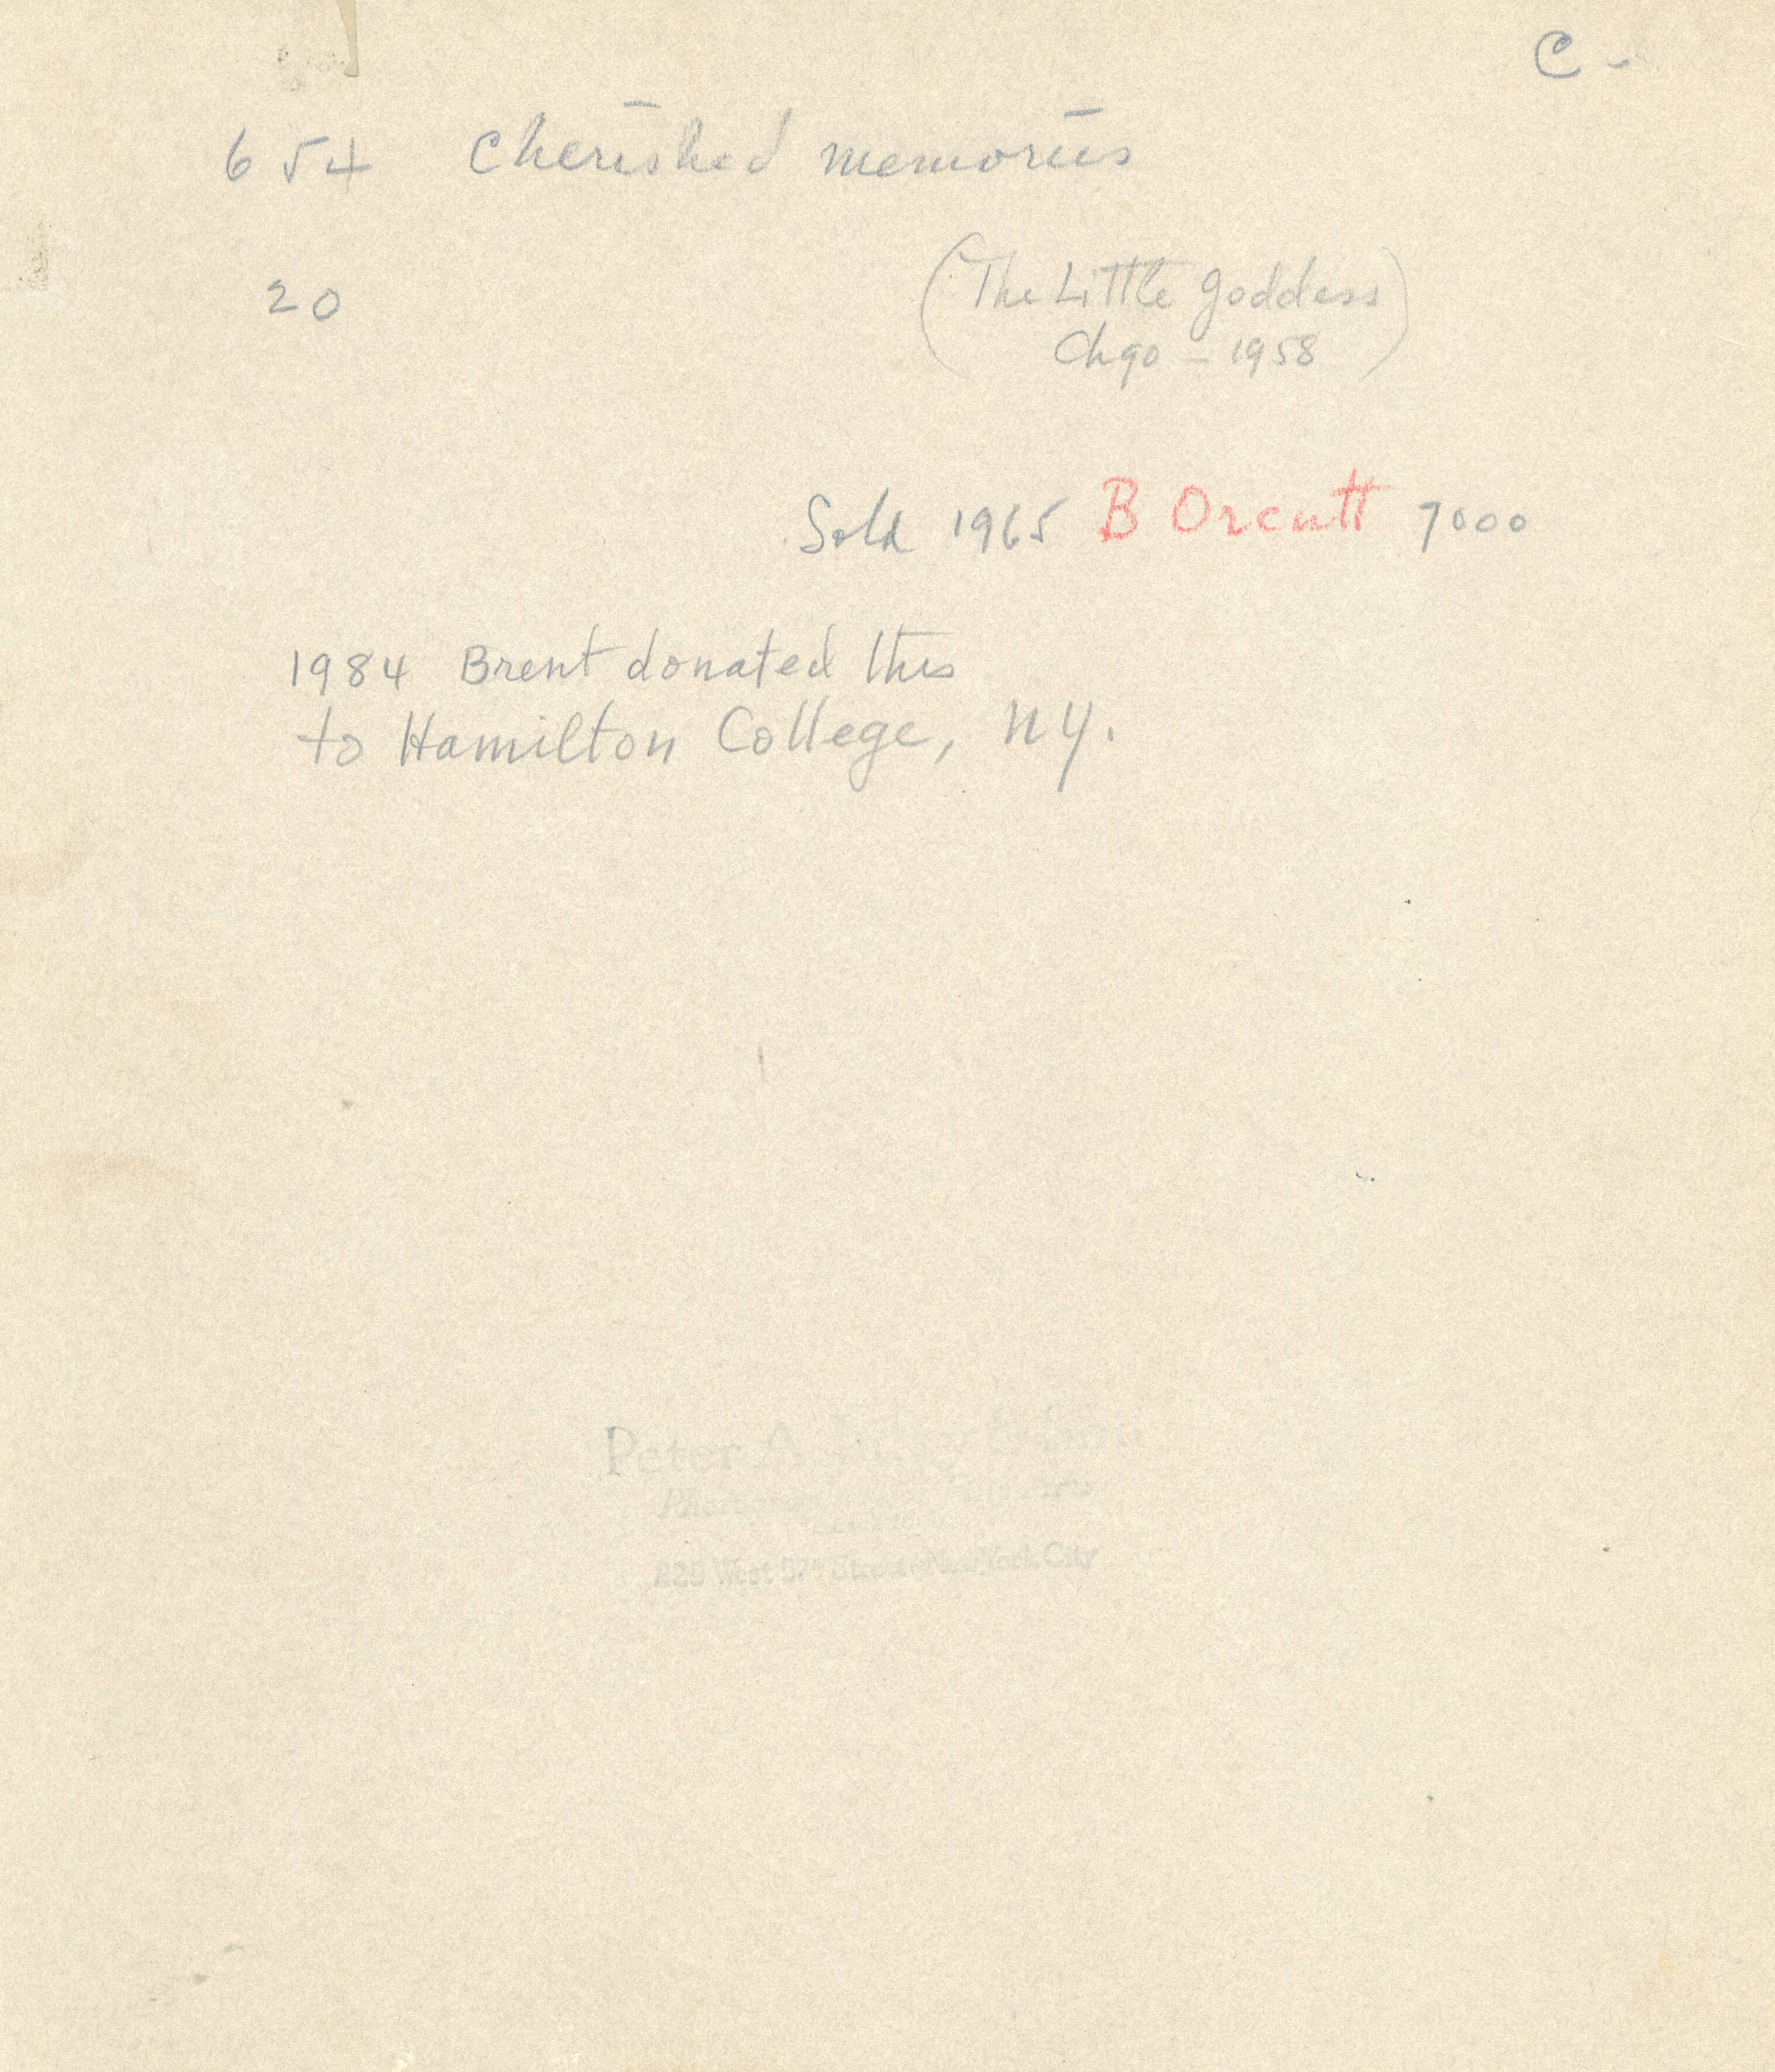 C -
654 Cherished memories
20 (The Little Goddess)
Chgo - 1958
Sold 1965 B Orcutt 7000
1984 Brent donated this
to Hamilton College, NY.
Peter A Juley & Son
West 57th Street New York City